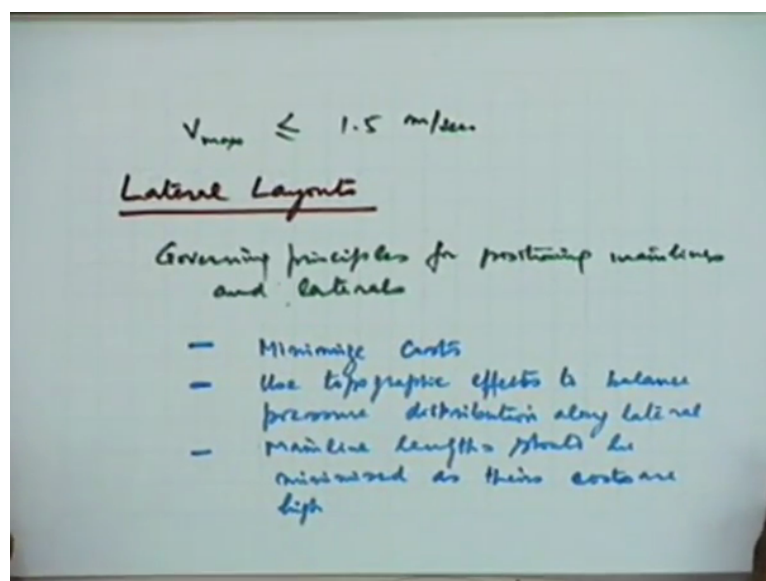 Vmax ≤ 1.5 m/sec
Lateral Layouts
Governing principles for positioning mainlines
and laterals
— Minimize Costs
— Use topographic effects to balance
pressure distribution along lateral
— Mainline lengths should be
minimised as theirs costs are
high